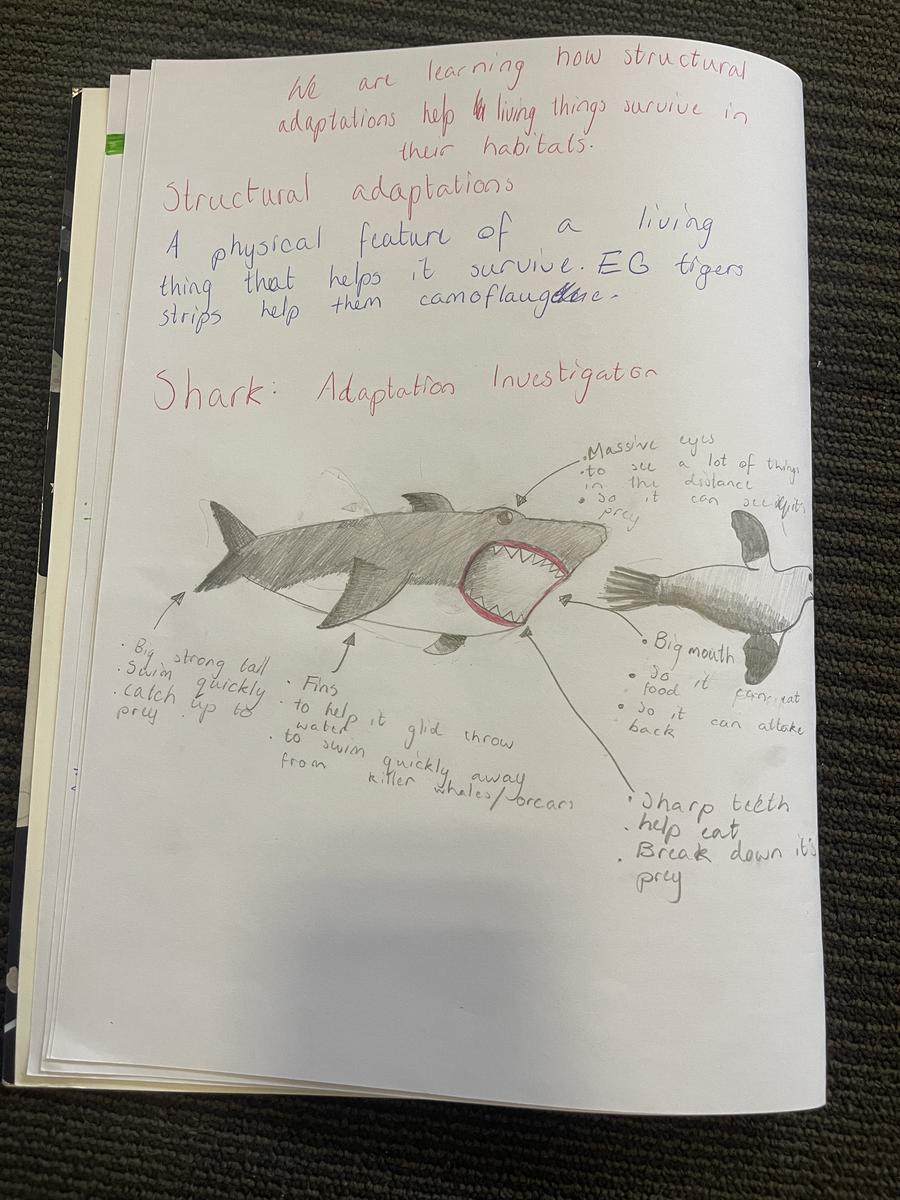 We are learning how structural
adaptations help living things survive in
their habitals.
Structural adaptations
A physical feature of a living
thing that helps it survive. EG tigers
strips help them camoflauge.
Shark: Adaptation Investigaton
• Massive eyes
• to see a lot of things
in the distance
• So it can see it's
prey
• Big strong tail
• Swim quickly
• catch up to
prey.
• Fins
• to help it glid throw
water
• to swim quickly away
from killer whales/orcars
• Big mouth
• So it can eat
food
• So it can attake
back
• Sharp teeth
• help eat
• Break down it's
prey